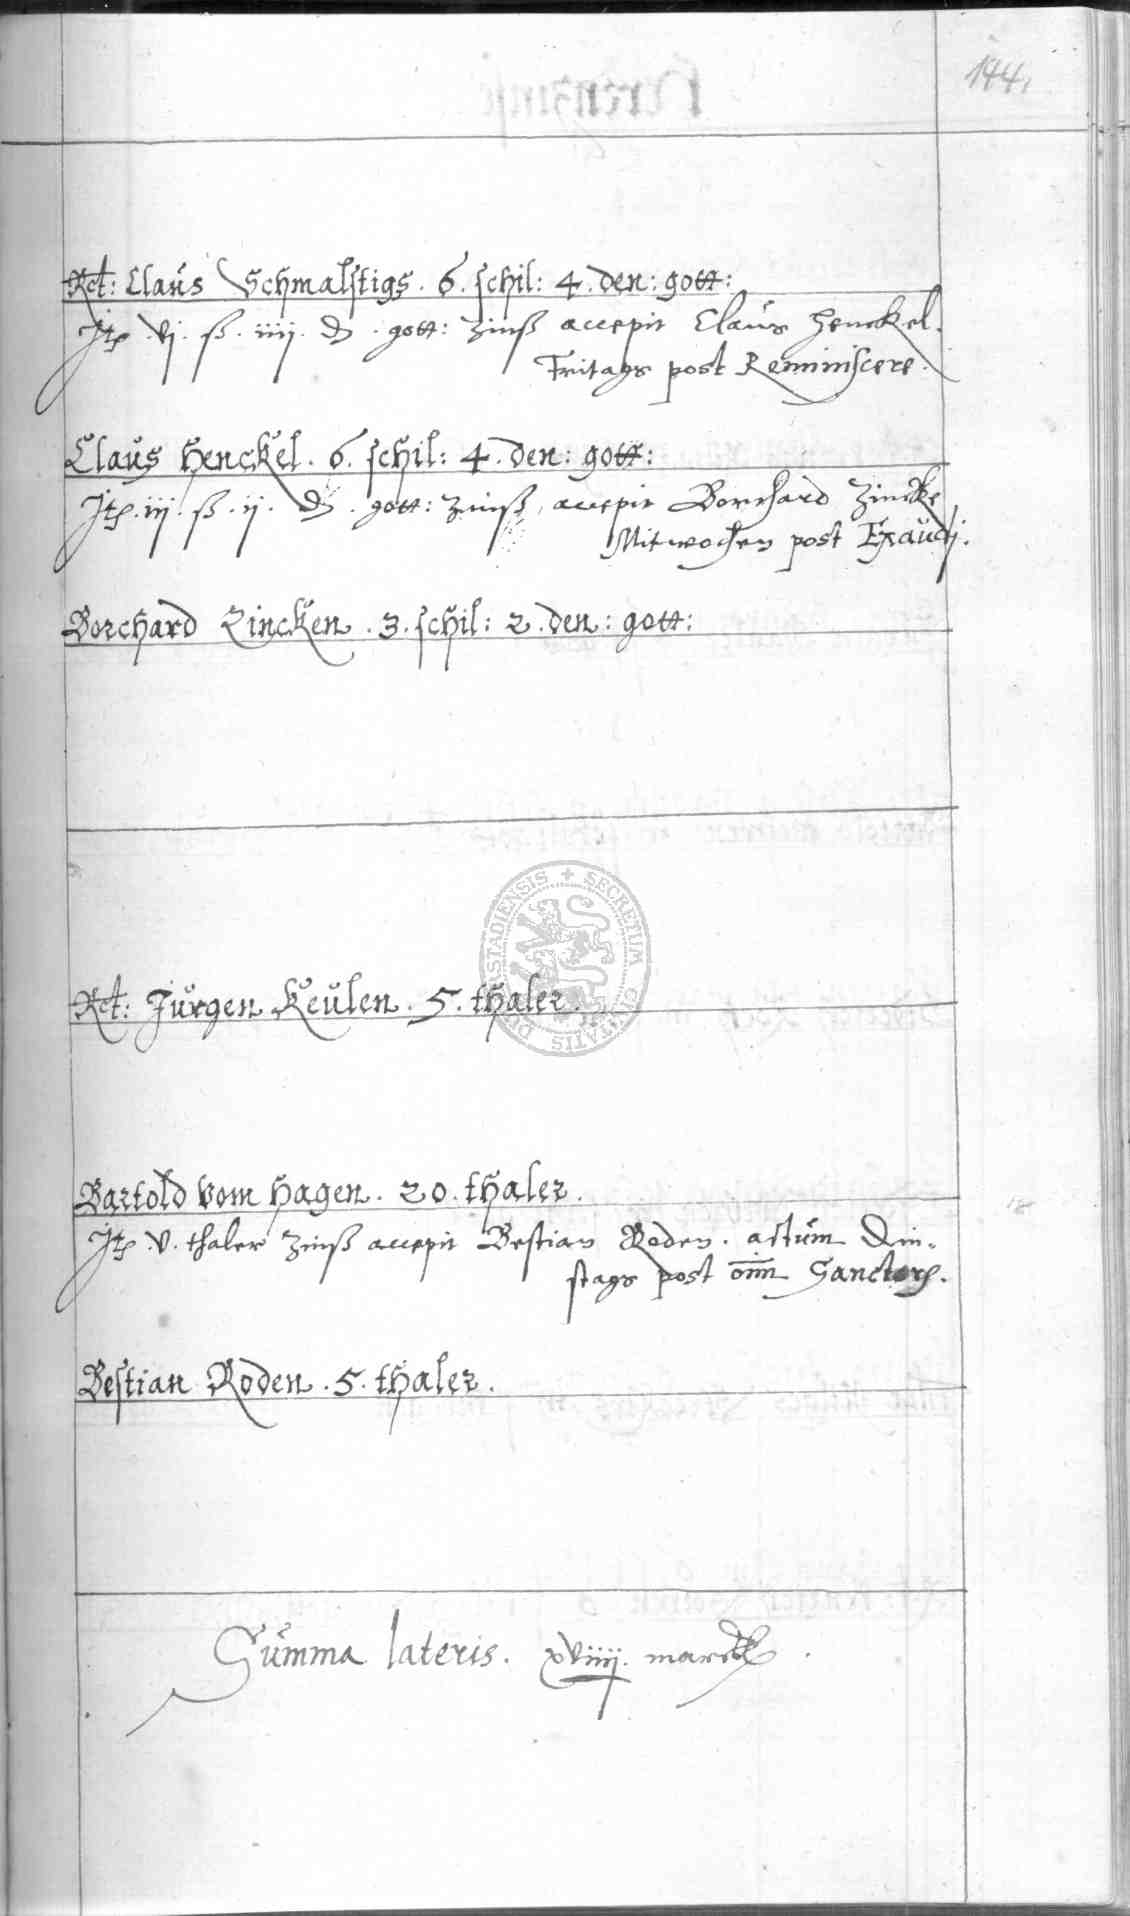 144.
Rct: Claus Schmalstigs . 6 . schil: 4 . den: gott:
Itē . vj . ß . iiij . ₰ . gott: Zinß accepit Claus Henckel.
Fritags post Reminiscere .
Claus Henckel . 6 . schil: 4 . den: gott:
Itē . iij . ß . ij . ₰ . gott: Zinß , accepit Borchard Zincke
Mitwochen post Exaudj .
Borchard Zincken . 3 . schil: 2 . den: gott:
SECRETUM CIVITATIS DUDERSTADIENSIS
Rct: Jürgen Keulen . 5 . thaler .
Bartold vom Hagen . 20 . thaler .
Itē . v . thaler Zinß accepit Bestian Roden . actum Din-
stags post om̄ Sanctorꝭ .
Bestian Roden . 5 . thaler .
Summa lateris . xviiij . marck .